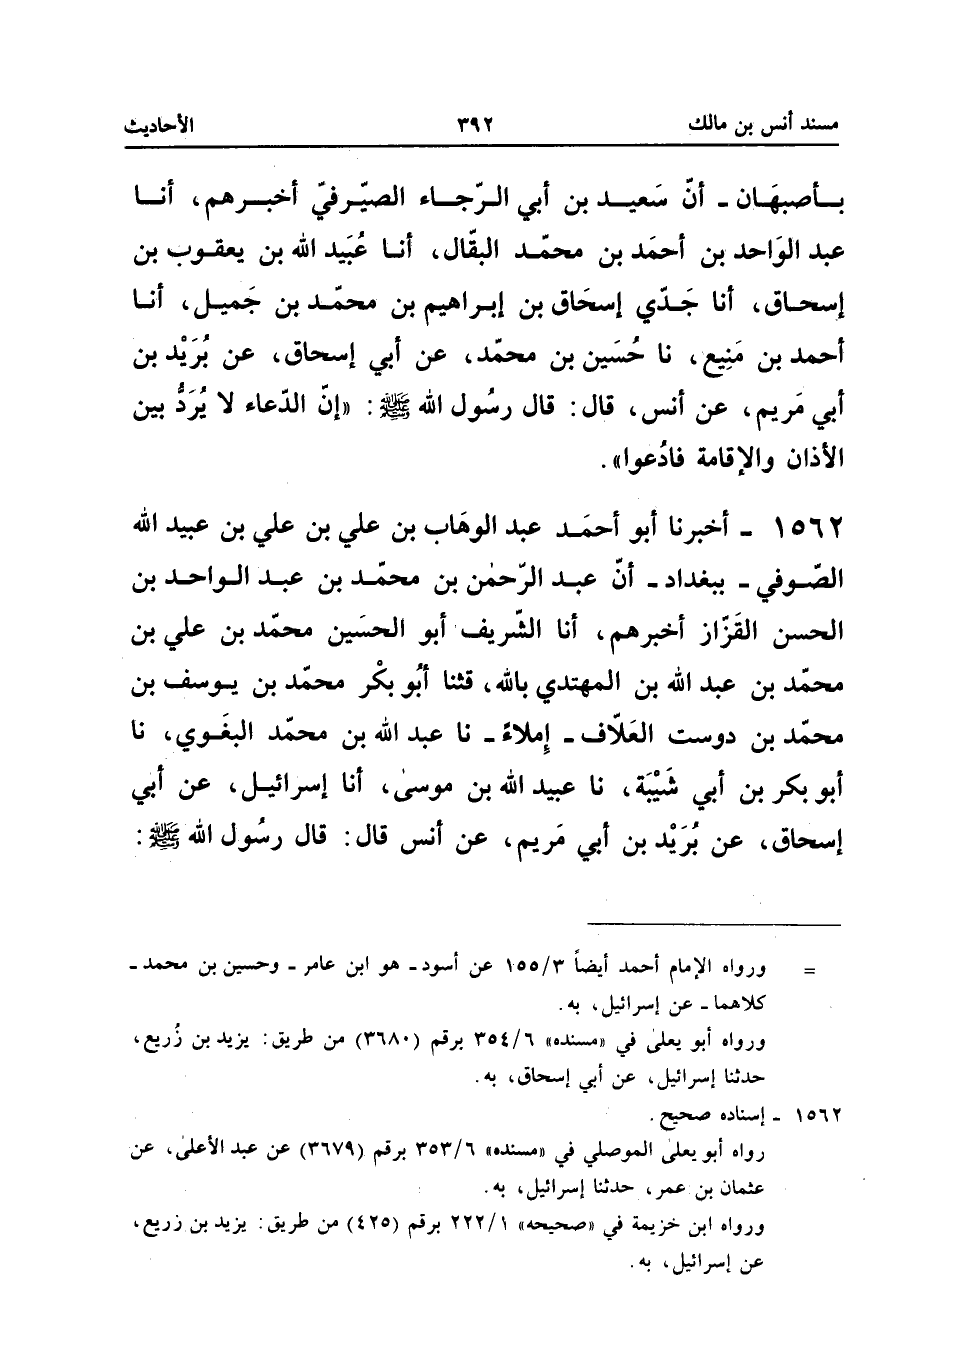 مسند أنس بن مالك ٣٩٢ الأحاديث
بـأصبهَـان ـ أنّ سَعيـد بن أبي الـرّجـاء الصيّـرفيّ أخبـرهـم، أنـا
عبد الوَاحد بن أحمَد بن محمّـد البقّال، أنـا عُبَيد الله بن يعقـوب بن
إسحـاق، أنا جَـدّي إسحَاق بن إبـراهيم بن محمّـد بن جَميـل، أنـا
أحمد بن مَنِيع، نا حُسَين بن محمّد، عن أبي إسحاق، عن بُرَيْد بن
أبي مَريم، عن أنس، قال: قال رسُول الله ﷺ: «إنّ الدّعاء لا يُرَدُّ بين
الأذان والإقامة فادُعوا».
١٥٦٢ ـ أخبرنا أبو أحمَـد عبد الوهَاب بن علي بن علي بن عبيد الله
الصّـوفي ـ ببغداد ـ أنّ عبـد الرّحمٰن بن محمّـد بن عبـد الـواحـد بن
الحسن القَزّاز أخبرهم، أنا الشّريف أبو الحسَين محمّد بن علي بن
محمّد بن عبد الله بن المهتدي بالله، قثنا أبُو بكْر محمّد بن يـوسف بن
محمّد بن دوست العَلاّف ـ إملاءً ـ نا عبد الله بن محمّد البغَوي، نا
أبو بكر بن أبي شَيْبَة، نا عبيد الله بن موسىٰ، أنا إسرائيـل، عن أبي
إسحاق، عن بُرَيْد بن أبي مَريم، عن أنس قال: قال رسُول الله ﷺ:
= ورواه الإمام أحمد أيضاً ١٥٥/٣ عن أسود ـ هو ابن عامر ـ وحسين بن محمد ـ
كلاهما ـ عن إسرائيل، به.
ورواه أبو يعلىٰ في «مسنده» ٣٥٤/٦ برقم (٣٦٨٠) من طريق: يزيد بن زُريع،
حدثنا إسرائيل، عن أبي إسحاق، به.
١٥٦٢ ـ إسناده صحيح.
رواه أبو يعلىٰ الموصلي في «مسنده» ٣٥٣/٦ برقم (٣٦٧٩) عن عبد الأعلىٰ، عن
عثمان بن عمر، حدثنا إسرائيل، به.
ورواه ابن خزيمة في «صحيحه» ٢٢٢/١ برقم (٤٢٥) من طريق: يزيد بن زريع،
عن إسرائيل، به.